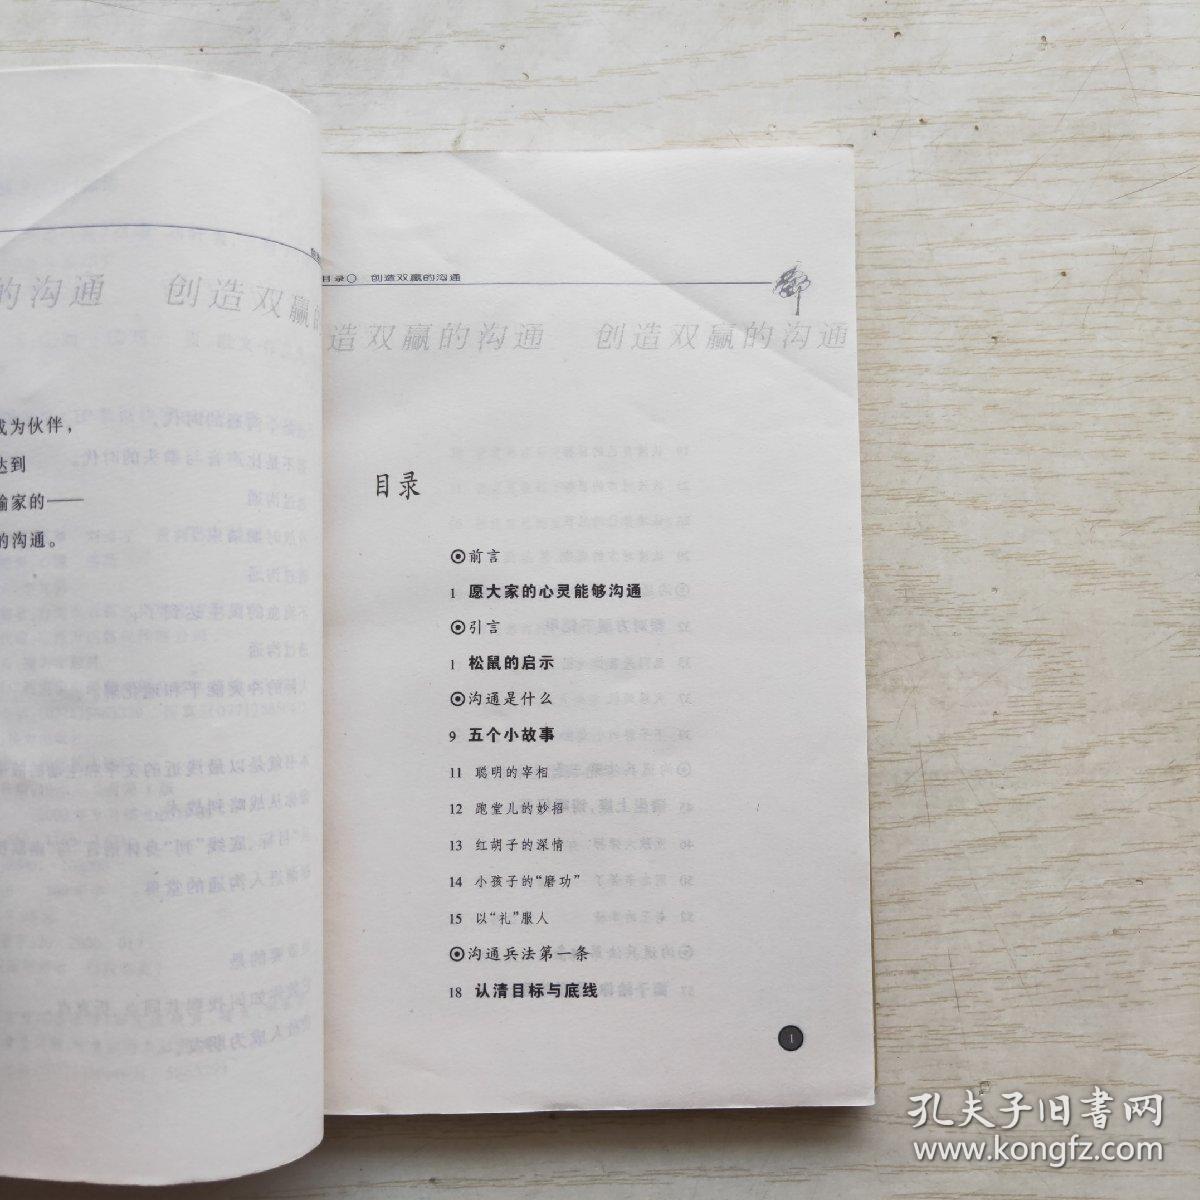 的沟通 创造双赢
成为伙伴，
达到
输家的——
的沟通。
目录 创造双赢的沟通
造双赢的沟通 创造双赢的沟通
目录
前言
1 愿大家的心灵能够沟通
引言
1 松鼠的启示
沟通是什么
9 五个小故事
11 聪明的宰相
12 跑堂儿的妙招
13 红胡子的深情
14 小孩子的“磨功”
15 以“礼”服人
沟通兵法第一条
18 认清目标与底线
1
孔夫子旧书网
www.kongfz.com